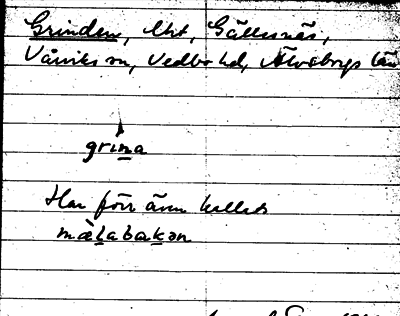 Grinden, Uht, Gällesnäs,
Vårviks sn, Vedbo hd, Älvsborgs län
grina
Har förr även kallats
mälabakən